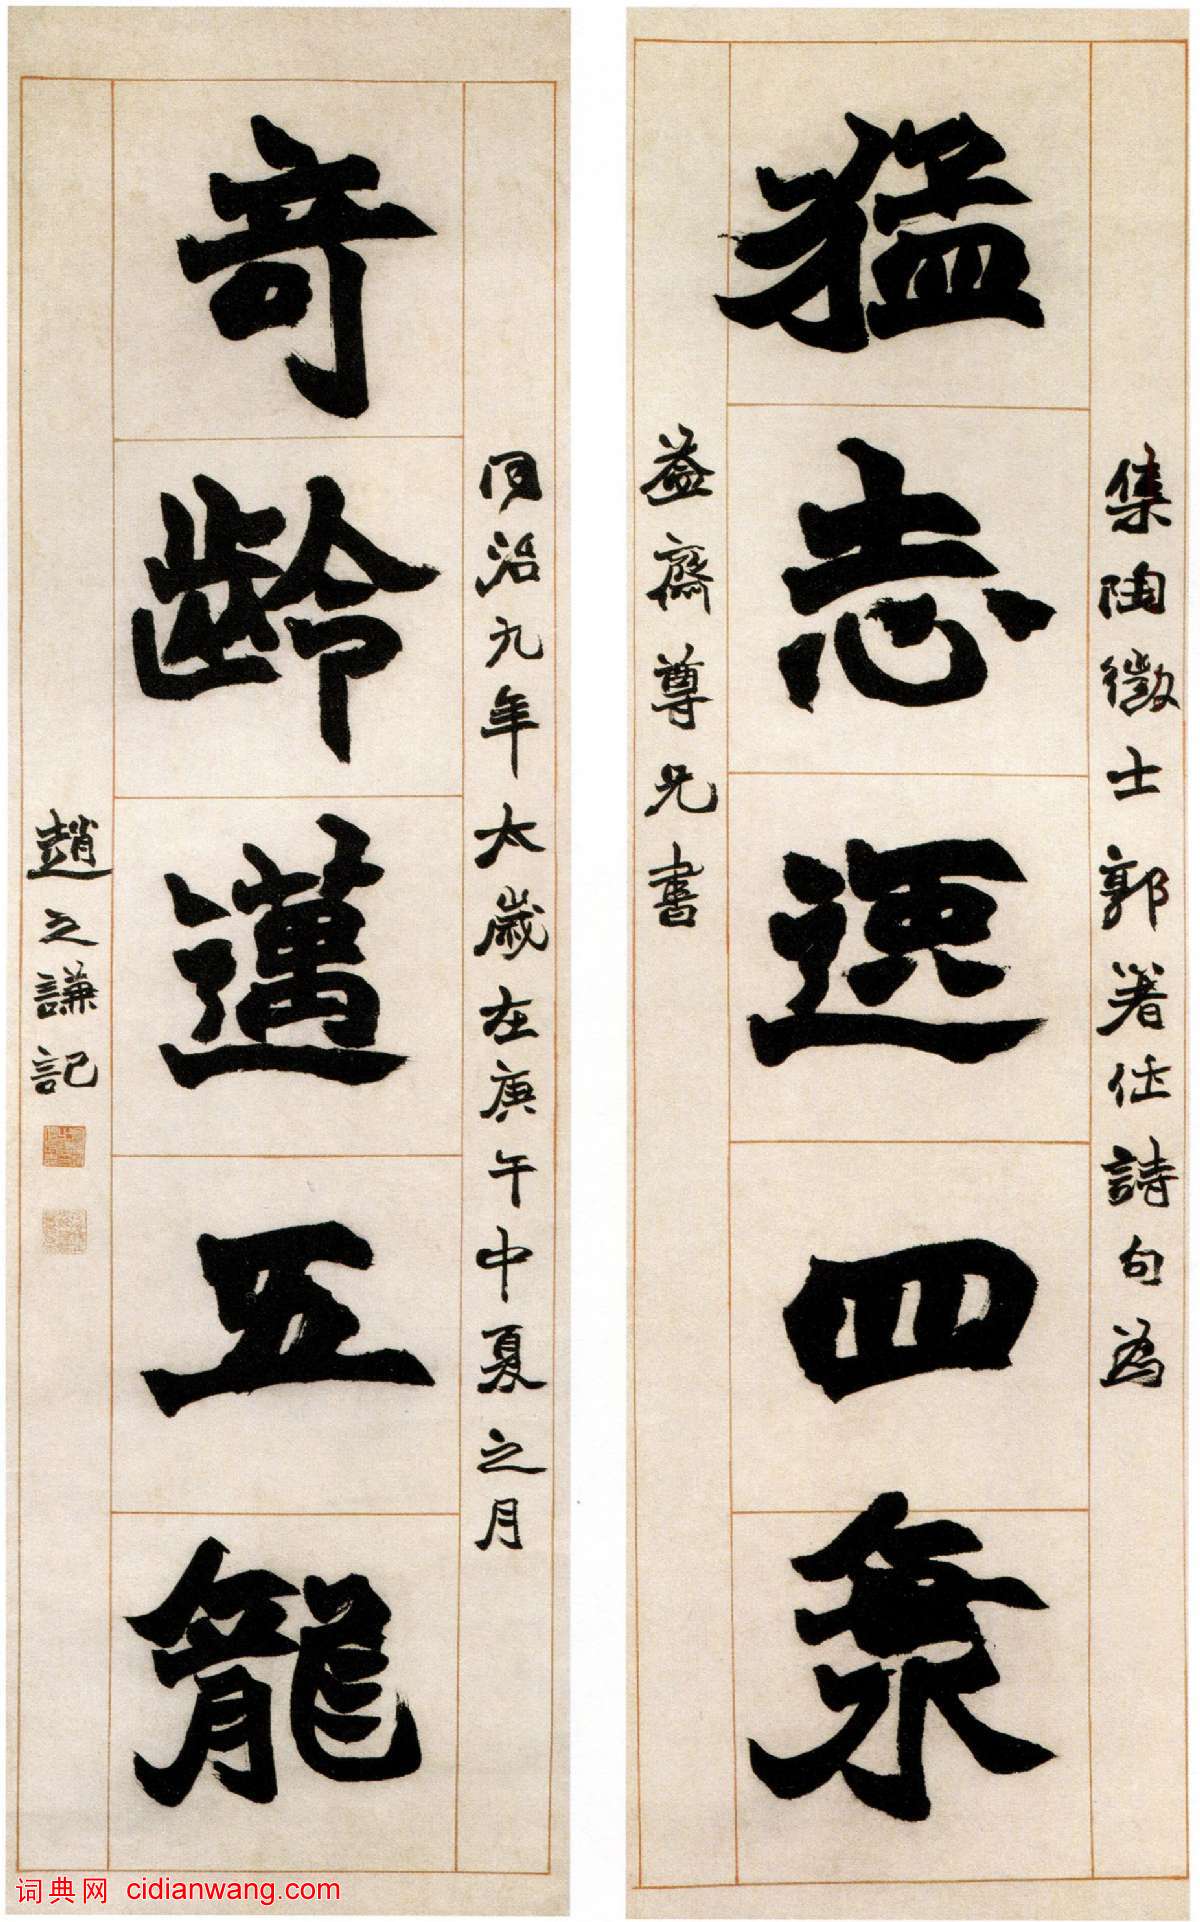 集陶徵士郭著作詩句為
猛志逸四海
益齋尊兄書
同治九年太歲在庚午中夏之月
奇齡邁五龍
趙之謙記
词典网 cidianwang.com